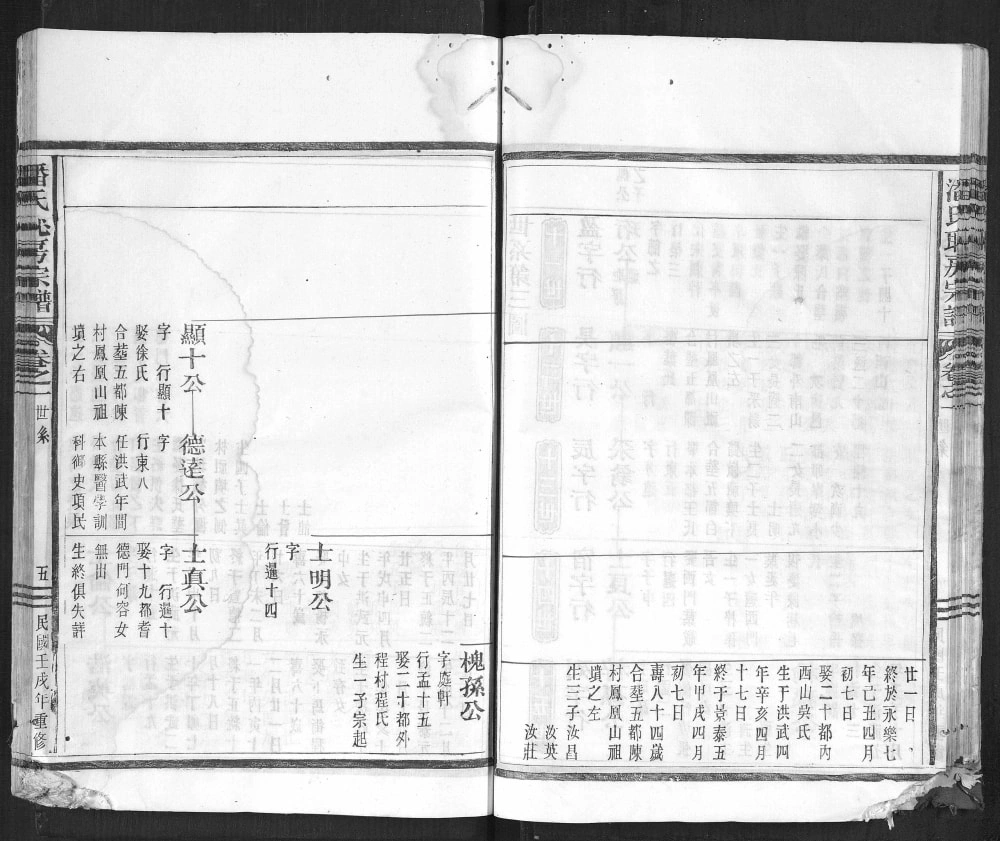 廿一日
終於永樂七
年己丑四月
初七日
娶二十都內
西山吳氏
生于洪武四
年辛亥四月
十七日
終于景泰五
年甲戌四月
初七日
壽八十四歲
合塟五都陳
村鳳凰山祖
墳之左
生三子汝昌
汝英
汝莊
槐孫公
字庭軒
行孟十五
娶二十都外
程村程氏
生一子宗起
士明公
字
行暹十四
顯十公
字 行顯十
娶徐氏
合塟五都陳
村鳳凰山祖
墳之右
德達公
字
行東八
任洪武年間
本縣醫學訓
科御史項民
士真公
字 行暹十
娶十九都耆
德門何容女
無出
生終俱失詳
潘氏 房宗譜
卷之一
世系
五
民國壬戌年重修